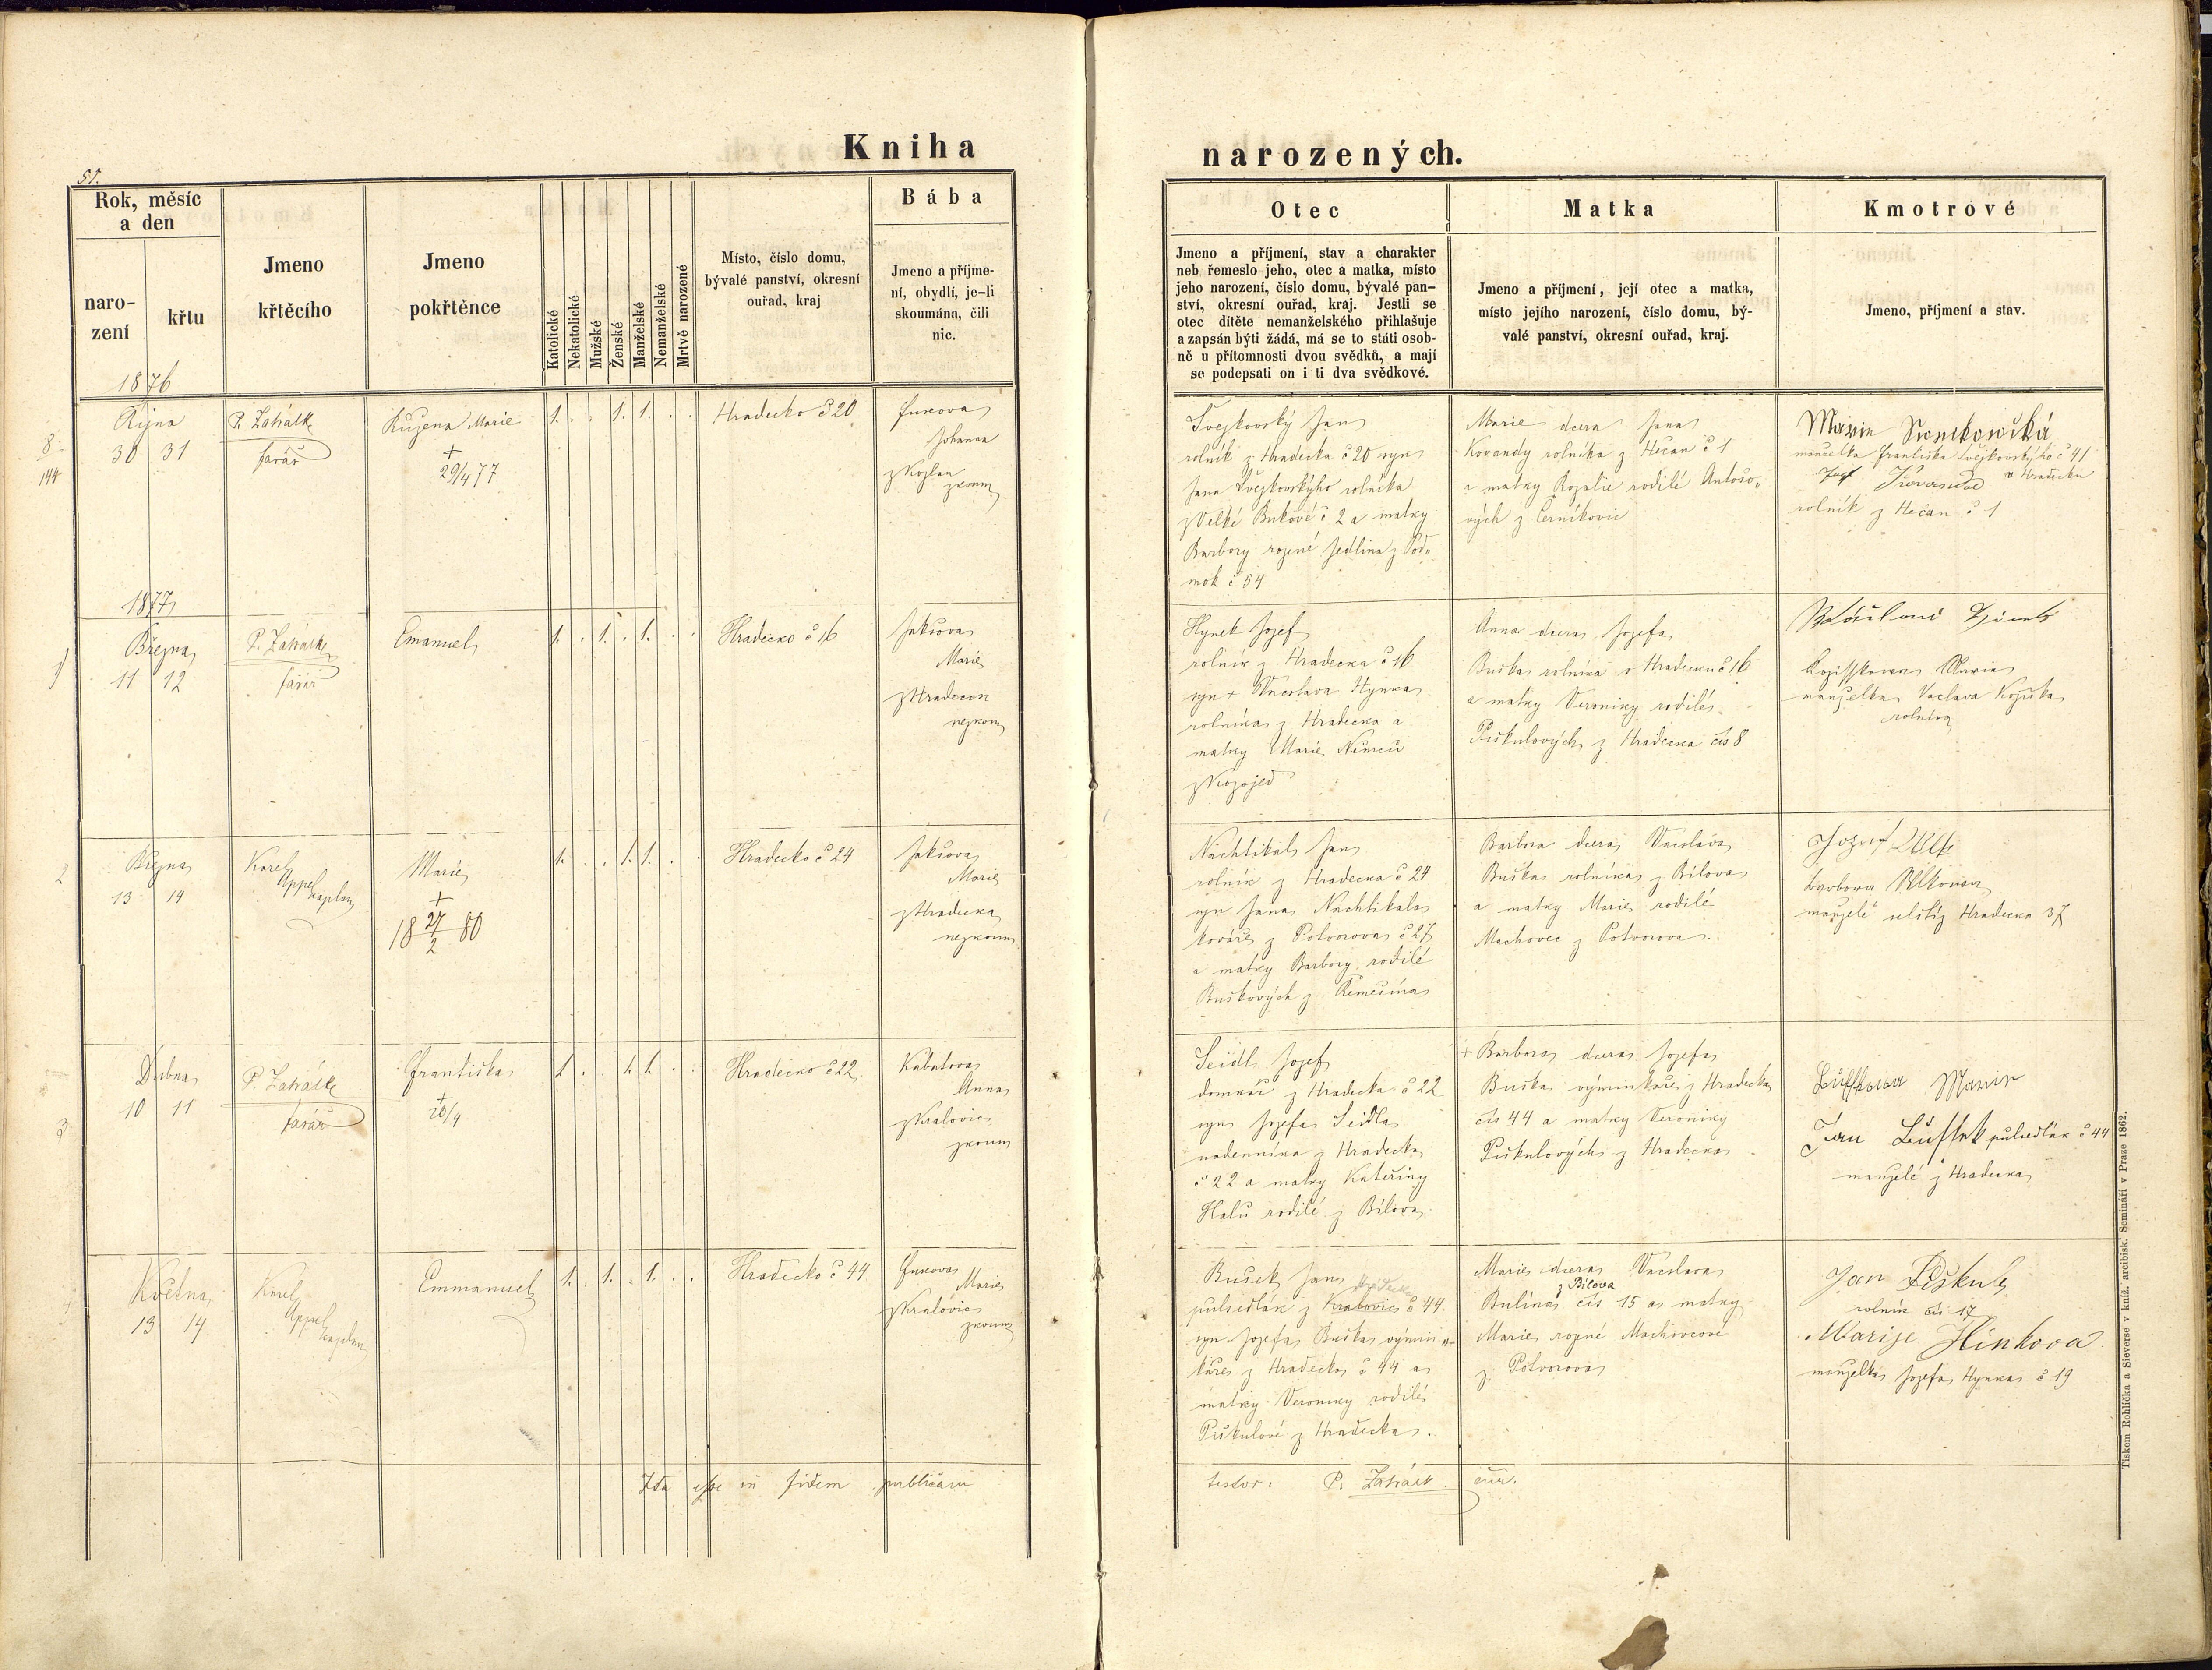 Kniha
narozených.
51.
Rok, měsíc
a den
naro-
zení
křtu
1876
Jmeno
křtěcího
Jmeno
pokřtěnce
Katolické
Nekatolické
Mužské
Ženské
Manželské
Nemanželské
Mrtvě narozené
Místo, číslo domu,
bývalé panství, okresní
ouřad, kraj
Bába
Jmeno a příjme-
ní, obydlí, je-li
skoumána, čili
nic.
Otec
Jmeno a příjmení, stav a charakter
neb řemeslo jeho, otec a matka, místo
jeho narození, číslo domu, bývalé pan-
ství, okresní ouřad, kraj. Jestli se
otec dítěte nemanželského přihlašuje
a zapsán býti žádá, má se to státi osob-
ně u přítomnosti dvou svědků, a mají
se podepsati on i ti dva svědkové.
Matka
Jmeno a příjmení, její otec a matka,
místo jejího narození, číslo domu, bý-
valé panství, okresní ouřad, kraj.
Kmotrové
Jmeno, příjmení a stav.
8
144
Října
30 31
farář
Růžena Marie
+
29/4 77
1. . . 1. 1. . .
Hradecko č 20
Johanna
z Kozlan
zkoum
Švejkovský Jan
rolník z Hradecka č 20 syn
Jana Švejkovskýho rolníka
z Velké Bukové č 2 a matky
Barbory rozené Jedlina z Pod-
mok č 54
Marie dcera Jana
Kovandy rolníka z Hečan č 1
a matky Rozalie rodilé Antošo-
vých z Černíkovic
Marie
manželka Františka Švejkovskýho č 41
z Hradecka
rolník z Hečan č 1
1877
1
Března
11 12
farář
Emanuel
1. . 1. . 1. . .
Hradecko č 16
Marie
z Hradecka
nezkoum
Hynek Jozef
rolník z Hradecka č 16
syn + Václava Hynka
rolníka z Hradecka a
matky Marie Němců
z Kozojed
Anna dcera Jozefa
Buška rolníka z Hradecka č 16
a matky Veroniky rodilé
Piškulových z Hradecka čís 8
Marie
manželka Václava
rolníka
2
Března
13 14
Karel
Appel
kaplan
Marie
+
18 27/2 80
1. . . 1. 1. . .
Hradecko č 24
Marie
z Hradecka
nezkoum
Nachtikal Jan
rolník z Hradecka č 24
syn Jana Nachtikala
kováře z Potvorova č 27
a matky Barbory rodilé
Buškových z Remešína
Barbora dcera Václava
Buška rolníka z Bílova
a matky Marie rodilé
Machovec z Potvorova.
Jozef
Barbora
manželé z Hradecka 37
3
Dubna
10 11
farář
Františka
+
20/4
1. . . 1. 1. . .
Hradecko č 22
Kabátova
Anna
z Kralovic
zkoum
Seidl Jozef
domkář z Hradecka č 22
syn Jozefa Seidla
nadenníka z Hradecka
č 22 a matky Kateřiny
Halů rodilé z Bílova.
+ Barbora dcera Jozefa
Buška výminkáře z Hradecka
čís 44 a matky Veroniky
Piškulových z Hradecka
Marie
Jan pulsedlák č 44
manželé z Hradecka
4
Května
13 14
Karel
Appel
kaplan
Emmanuel
1. . 1. . 1. . .
Hradecko č 44
Marie
z Kralovic
zkoum
Bušek Jan Hradecka
pulsedlák z Kralovic č 44.
syn Jozefa Buška výmin-
káře z Hradecka č 44 a
matky Veroniky rodilé
Piškulové z Hradecka.
Marie dcera Václava
z Bílova
Bulína čís 15 a matky
Marie rozené Machovcové
z Potvorova
Jan Piškule
rolník čís 17
Marije Hinkova
manželka Jozefa Hynka č 19
Ita esse in fidem publicam
testor: P. Zahálk cur.
Tiskem Rohlíčka a Sieverse v kníž. arcibisk. Semináři v Praze 1862.